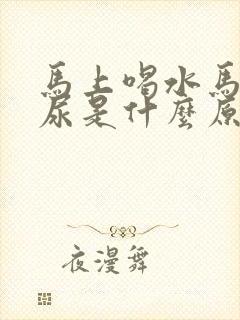 馬上喝水馬
尿是什麼原
夜漫舞